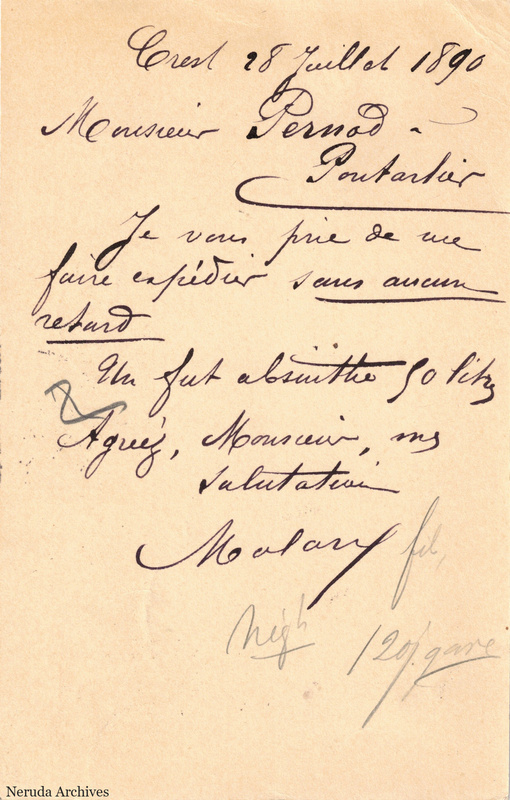 Crest 28 Juillet 1890
Monsieur Pernod -
Pontarlier
Je vous prie de me
faire expédier sans aucun
retard
Un fut absinthe 50 litres
Agréez, Monsieur, mes
salutations
fils
120f. gare
Neruda Archives